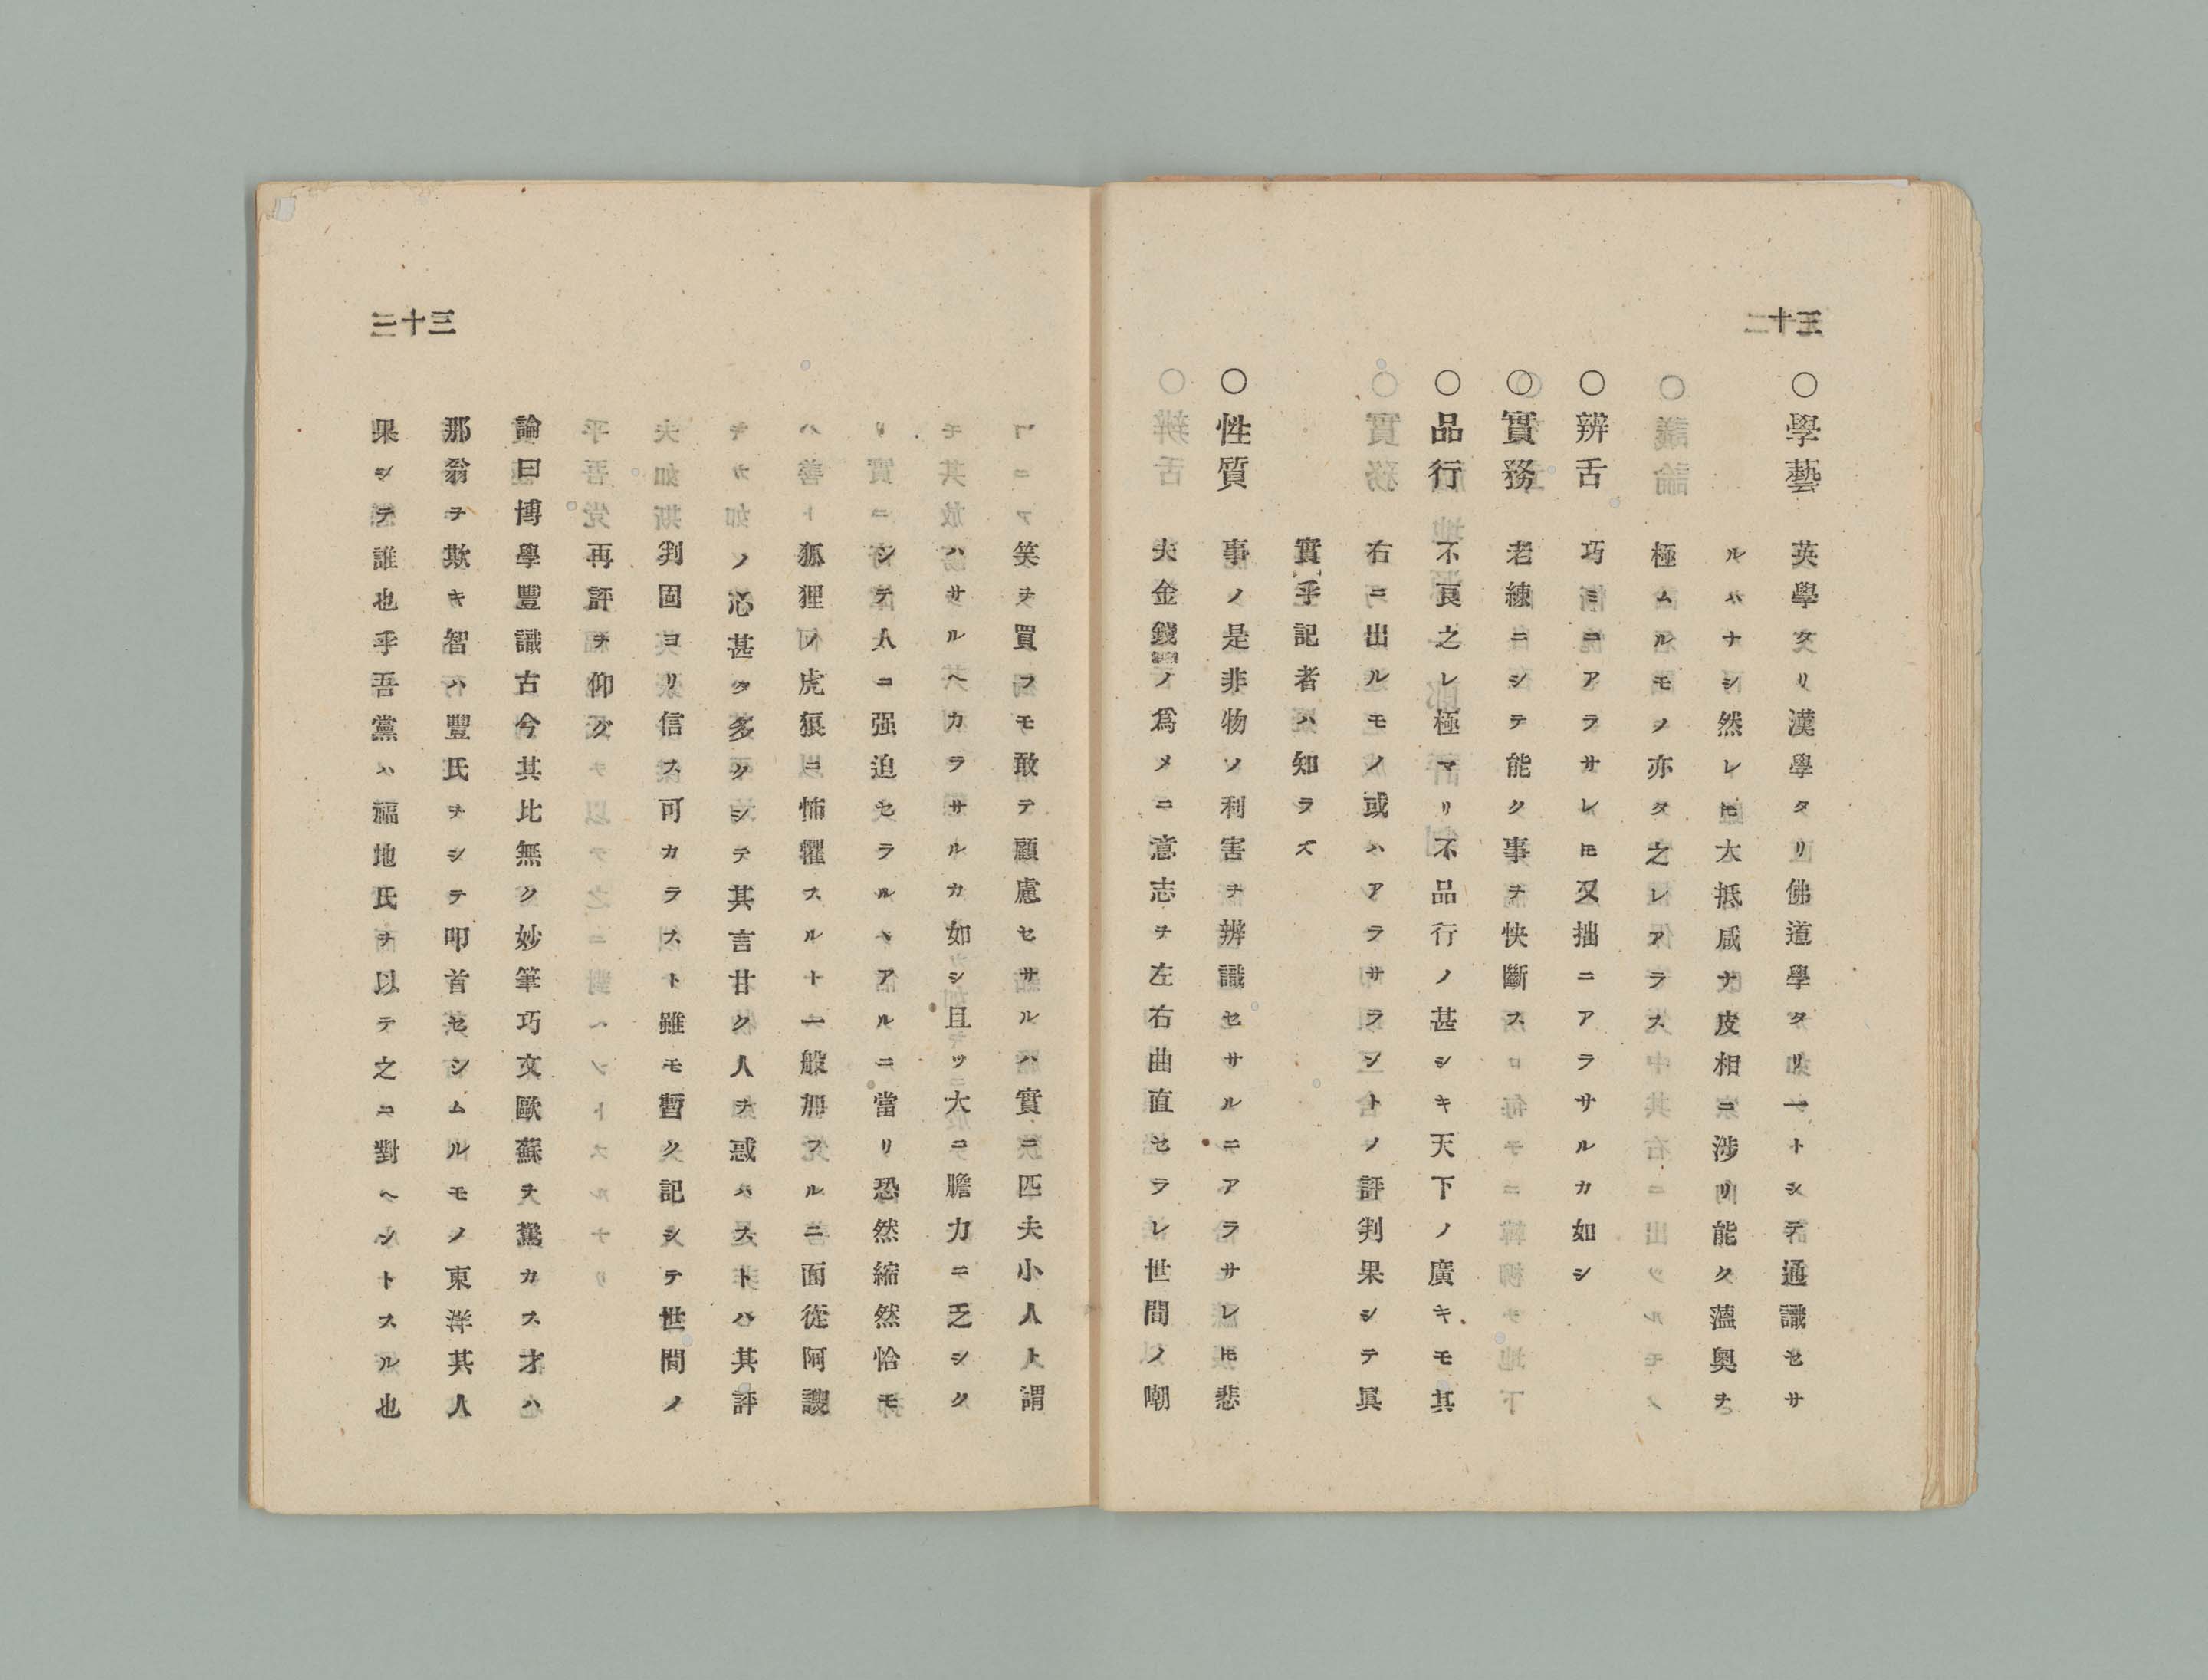 三十二
○學藝 英學タリ漢學タリ佛道學タリ一トシテ通識セサ
ルハナシ然レ𪜈大抵咸ナ皮相ニ涉リ能ク薀奧ヲ
極ムルモノ亦タ之レアラス
○辨舌 巧ミニアラサレ𪜈又拙ニアラサルカ如シ
○實務 老練ニシテ能ク事ヲ快斷ス
○品行 不良之レ極マリ不品行ノ甚シキ天下ノ廣キモ其
右ニ出ルモノ或ハアラサラントノ評判果シテ眞
實乎記者ハ知ラズ
○性質 事ノ是非物ノ利害ヲ辨識セサルニアラサレ𪜈悲
夫金錢ノ爲メニ意志ヲ左右曲直セラレ世間ノ嘲
笑ヲ買フモ敢テ顧慮セサルハ實ニ匹夫小人ト謂
ハサルヘカラサルカ如シ且ッ大ニ膽力ニ乏シク
シテ人ニ强迫セラルヽアルニ當リ恐然縮然恰モ
狐狸ノ虎狼ニ怖懼スルト一般加フルニ面從阿諛
ノ心甚タ多クシテ其言甘ク人ヲ惑ハストハ其評
判固ヨリ信ス可カラスト雖モ暫ク記シテ世間ノ
再評ヲ仰ク
論曰博學豐識古今其比無ク妙筆巧文歐蘇ヲ驚カス才ハ
那翁ヲ欺キ智ハ豐氏ヲシテ叩首セシムルモノ東洋其人
果シテ誰也乎吾黨ハ福地氏ヲ以テ之ニ對ヘントスル也
三十三